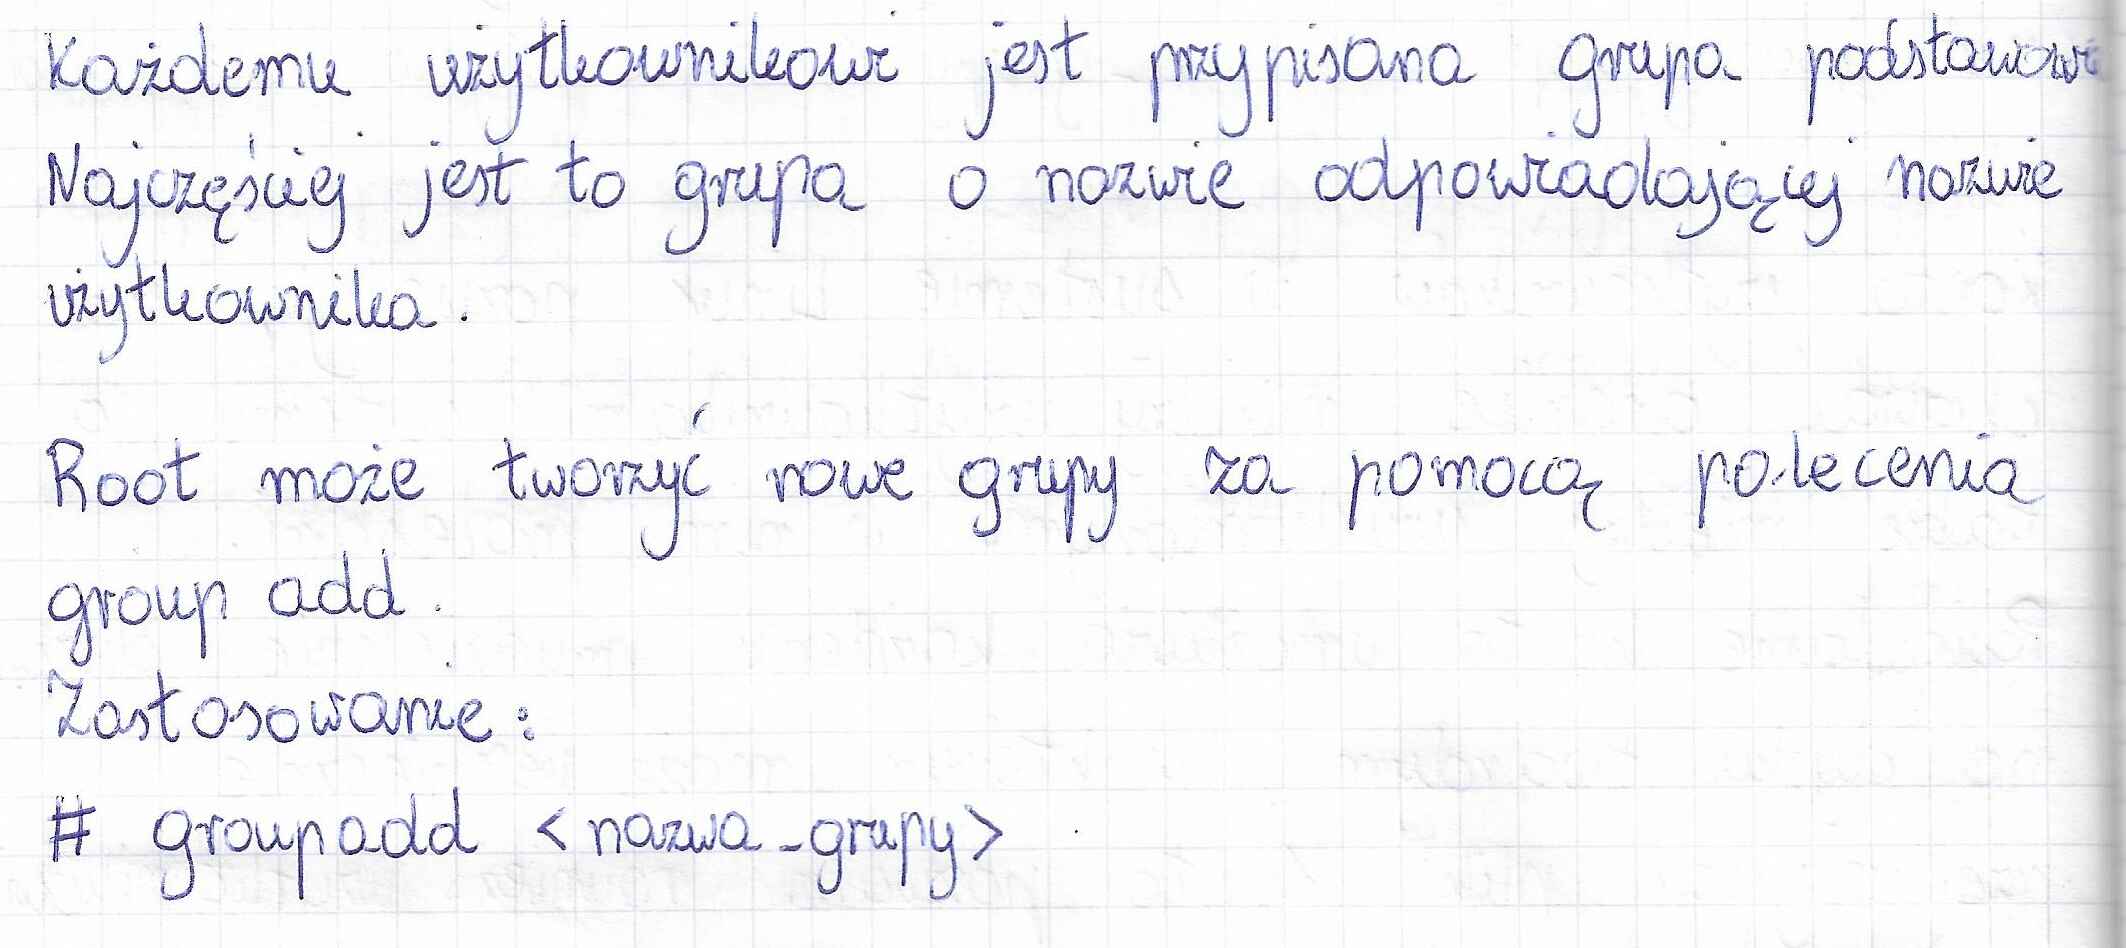 Każdemu użytkownikowi jest przypisana grupa podstawow
Najczęściej jest to grupa o nazwie odpowiadającej nazwie
użytkownika.
Root może tworzyć nowe grupy za pomocą polecenia
group add.
Zastosowanie:
# groupadd <nazwa_grupy>